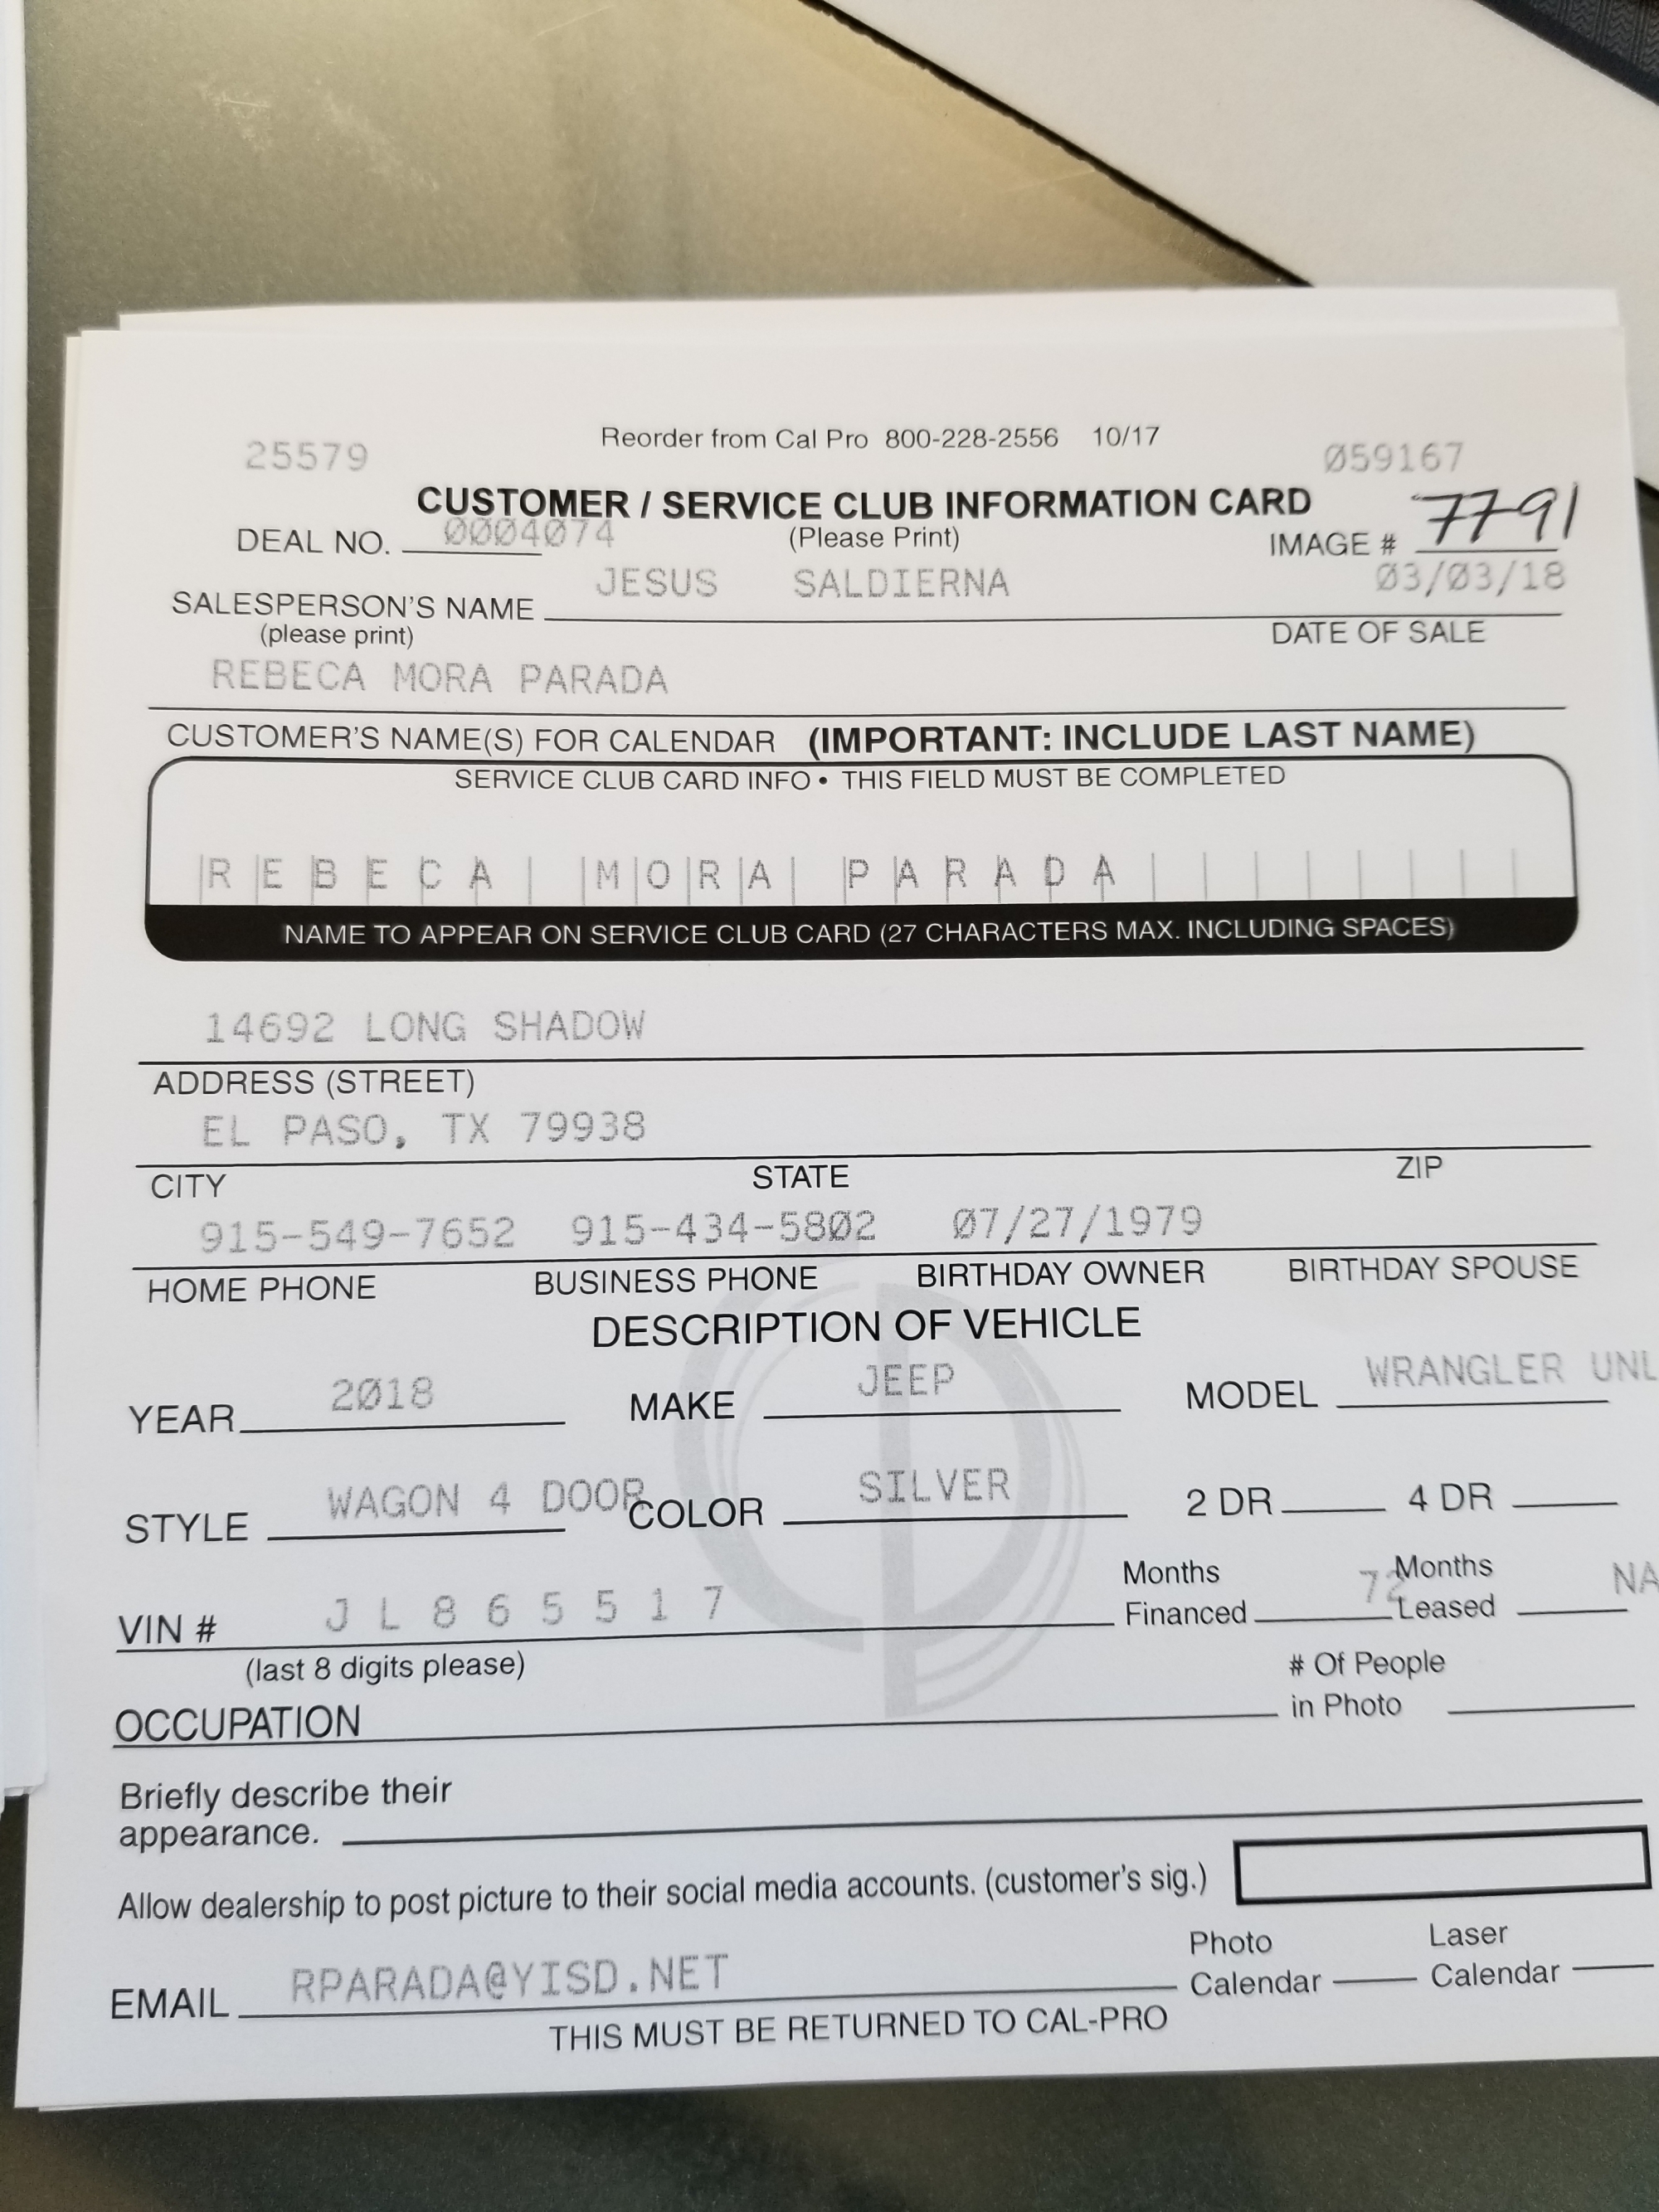 Reorder from Cal Pro 800-228-2556 10/17
25579 Ø59167
CUSTOMER / SERVICE CLUB INFORMATION CARD
DEAL NO. ØØØ4Ø74 (Please Print) IMAGE # 7791
SALESPERSON'S NAME JESUS SALDIERNA Ø3/Ø3/18
(please print) DATE OF SALE
REBECA MORA PARADA
CUSTOMER'S NAME(S) FOR CALENDAR (IMPORTANT: INCLUDE LAST NAME)
SERVICE CLUB CARD INFO • THIS FIELD MUST BE COMPLETED
R E B E C A M O R A P A R A D A
NAME TO APPEAR ON SERVICE CLUB CARD (27 CHARACTERS MAX. INCLUDING SPACES)
14692 LONG SHADOW
ADDRESS (STREET)
EL PASO, TX 79938
CITY STATE ZIP
915-549-7652 915-434-58Ø2 Ø7/27/1979
HOME PHONE BUSINESS PHONE BIRTHDAY OWNER BIRTHDAY SPOUSE
DESCRIPTION OF VEHICLE
YEAR 2Ø18 MAKE JEEP MODEL WRANGLER UNL
STYLE WAGON 4 DOOR COLOR SILVER 2 DR 4 DR
VIN # J L 8 6 5 5 1 7 Months Financed 72 Months Leased NA
(last 8 digits please)
OCCUPATION # Of People in Photo
Briefly describe their
appearance.
Allow dealership to post picture to their social media accounts. (customer's sig.)
EMAIL RPARADA@YISD.NET Photo Calendar Laser Calendar
THIS MUST BE RETURNED TO CAL-PRO